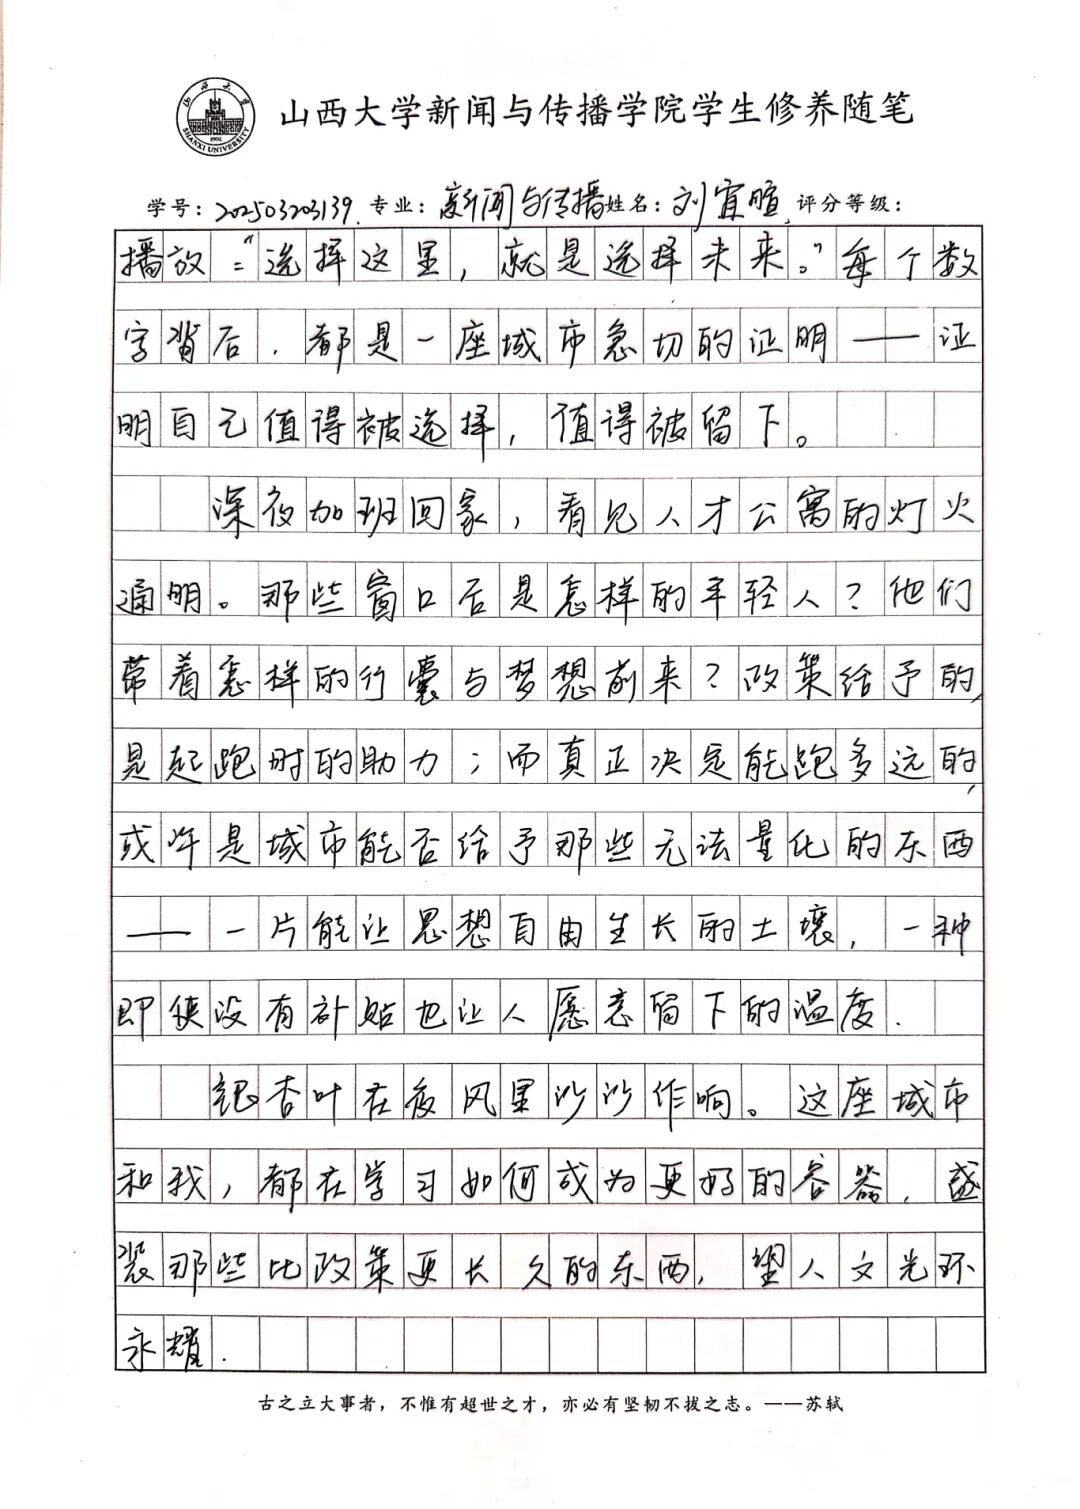 山西大学
SHANXI UNIVERSITY
1902
山西大学新闻与传播学院学生修养随笔
学号：202503203139 专业：新闻与传播 姓名：刘宜暄 评分等级：
播放："选择这里，就是选择未来。"每个数
字背后，都是一座城市急切的证明——证
明自己值得被选择，值得被留下。
深夜加班回家，看见人才公寓的灯火
通明。那些窗口后是怎样的年轻人？他们
带着怎样的行囊与梦想前来？政策给予的，
是起跑时的助力；而真正决定能跑多远的，
或许是城市能否给予那些无法量化的东西
——一片能让思想自由生长的土壤，一种
即使没有补贴也让人愿意留下的温度.
银杏叶在夜风里沙沙作响。这座城市
和我，都在学习如何成为更好的容器，盛
装那些比政策更长久的东西，望人文光环
永耀.
古之立大事者，不惟有超世之才，亦必有坚韧不拔之志。——苏轼